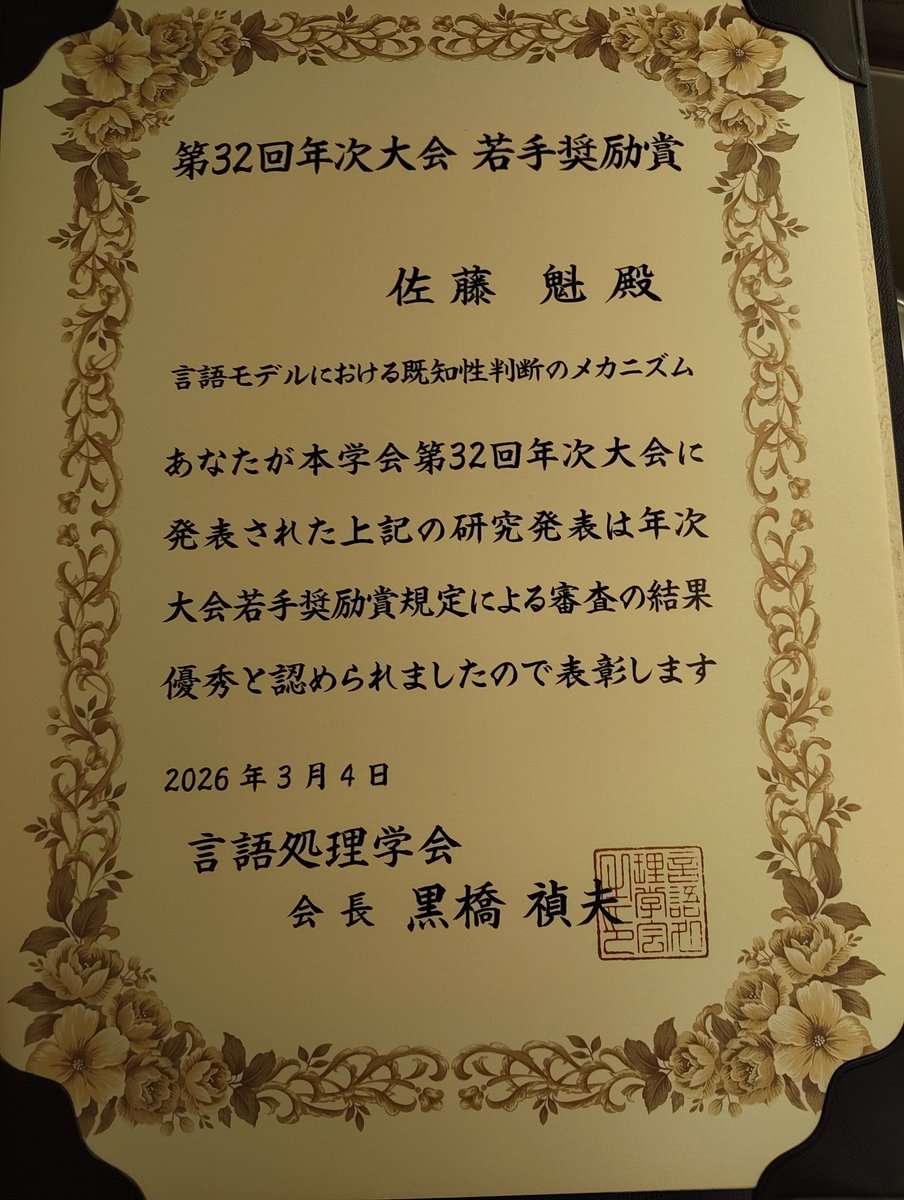 第32回年次大会 若手奨励賞
佐藤 魁 殿
言語モデルにおける既知性判断のメカニズム
あなたが本学会第32回年次大会に
発表された上記の研究発表は年次
大会若手奨励賞規定による審査の結果
優秀と認められましたので表彰します
2026年3月4日
言語処理学会
会長 黒橋 禎夫